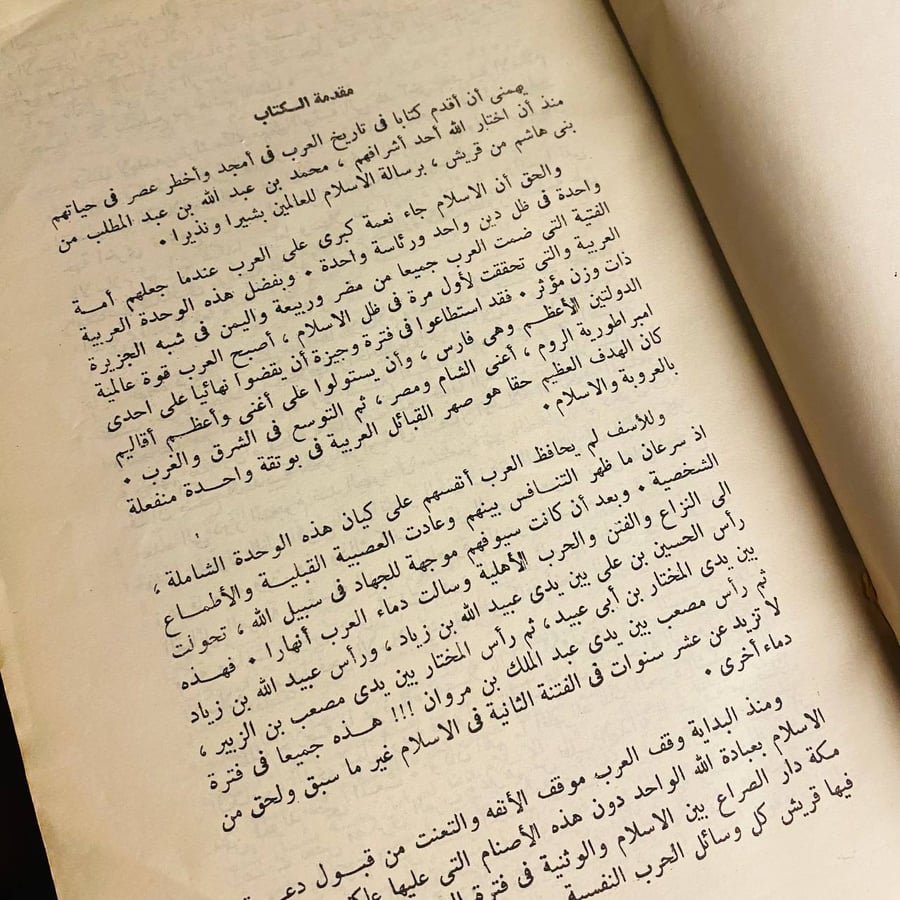 مقدمة الـكتاب
يهمنى أن أقدم كتابا فى تاريخ العرب فى أمجد وأخطر عصر فى حياتهم
منذ أن اختار الله أحد أشرافهم ، محمد بن عبد الله بن عبد المطلب من
بنى هاشم من قريش ، برسالة الاسلام للعالمين بشيرا ونذيرا •
والحق أن الاسلام جاء نعمة كبرى على العرب عندما جعلهم أمـة
واحدة فى ظل دين واحد ورئاسة واحدة • وبفضل هذه الوحدة العربية
الفتية التى ضمت العرب جميعا من مضر وربيعة واليمن فى شبه الجزيرة
العربية والتى تحققت لأول مرة فى ظل الاسلام ، أصبح العرب قوة عالمية
ذات وزن مؤثر • فقد استطاعوا فى فترة وجيزة أن يقضوا نهائيا على احدى
الدولتين الأعظـم وهى فارس ، وأن يستولوا على أغنى وأعظـم أقاليم
امبراطورية الروم ، أغنى الشام ومصر ، ثم التوسع فى الشرق والغرب •
كان الهدف العظيم حقا هو صهر القبائل العربية فى بوتقة واحـدة منفعلة
بالعروبة والاسلام •
وللأسف لم يحافظ العرب أنفسهم على كيان هذه الوحدة الشاملة ،
اذ سرعان ما ظهر التنـافس بينهم وعادت العصبية القبليـة والأطمـاع
الشخصية • وبعد أن كانت سيوفهم موجهة للجهاد فى سبيل الله ، تحولت
الى النزاع والفتن والحرب الأهلية وسالت دماء العرب أنهارا • فهـذه
رأس الحسين بن على بين يدى عبيد الله بن زياد ، ورأس عبيد الله بن زياد
بين يدى المختار بن أبى عبيد ، ثم رأس المختار بين يدى مصعب بن الزبير ،
ثم رأس مصعب بين يدى عبد الملك بن مروان !!! هذه جميعا فى فترة
لا تزيد عن عشر سنوات فى الفتنة الثانية فى الاسلام غير ما سبق ولحق من
دماء أخرى •
ومنذ البداية وقف العرب موقف الأنفه والتعنت من قبـول
الاسلام بعبادة الله الواحد دون هذه الأصنام التى عليها
مكة دار الصراع بين الاسلام والوثنية فى فترة
فيها قريش كل وسائل الحرب النفسية